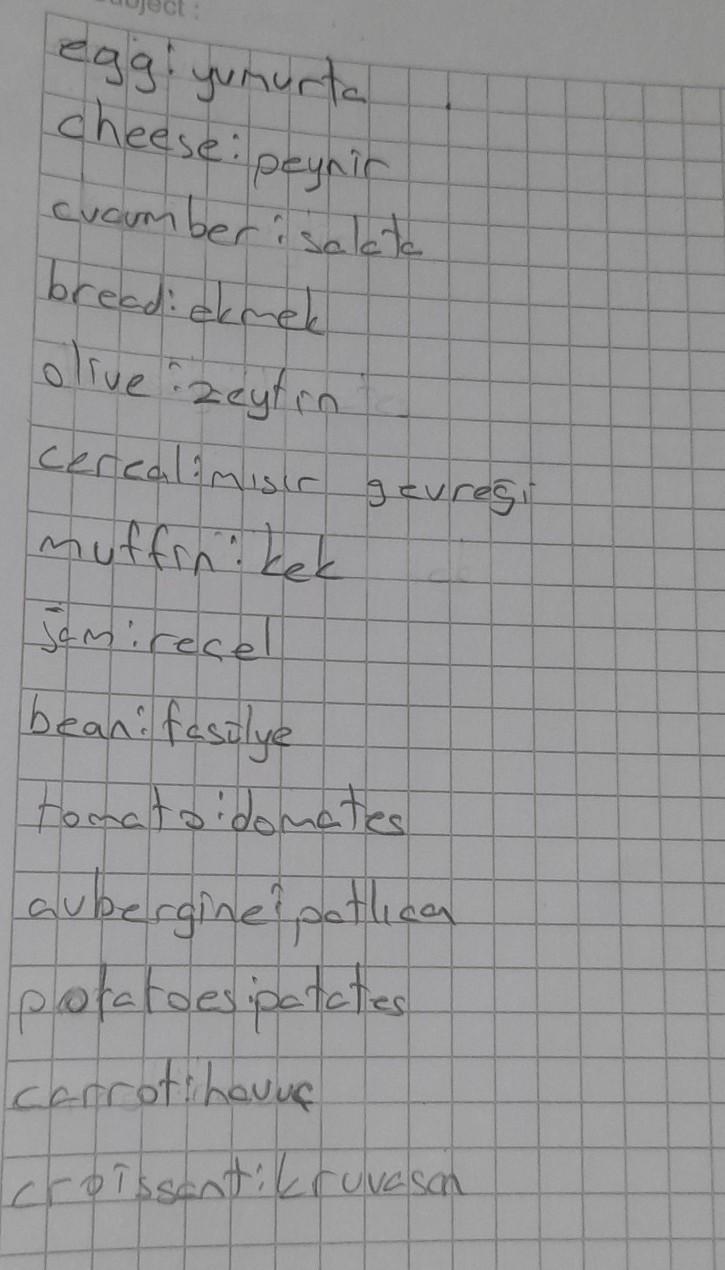 Subject :
egg: yumurta
cheese: peynir
cucumber: salata
bread: ekmek
olive: zeytin
cereal: mısır gevreği
muffin: kek
jam: recel
bean: fasulye
tomato: domates
aubergine: patlıcan
potatoes: patates
carrot: havuç
croissant: kruvasan